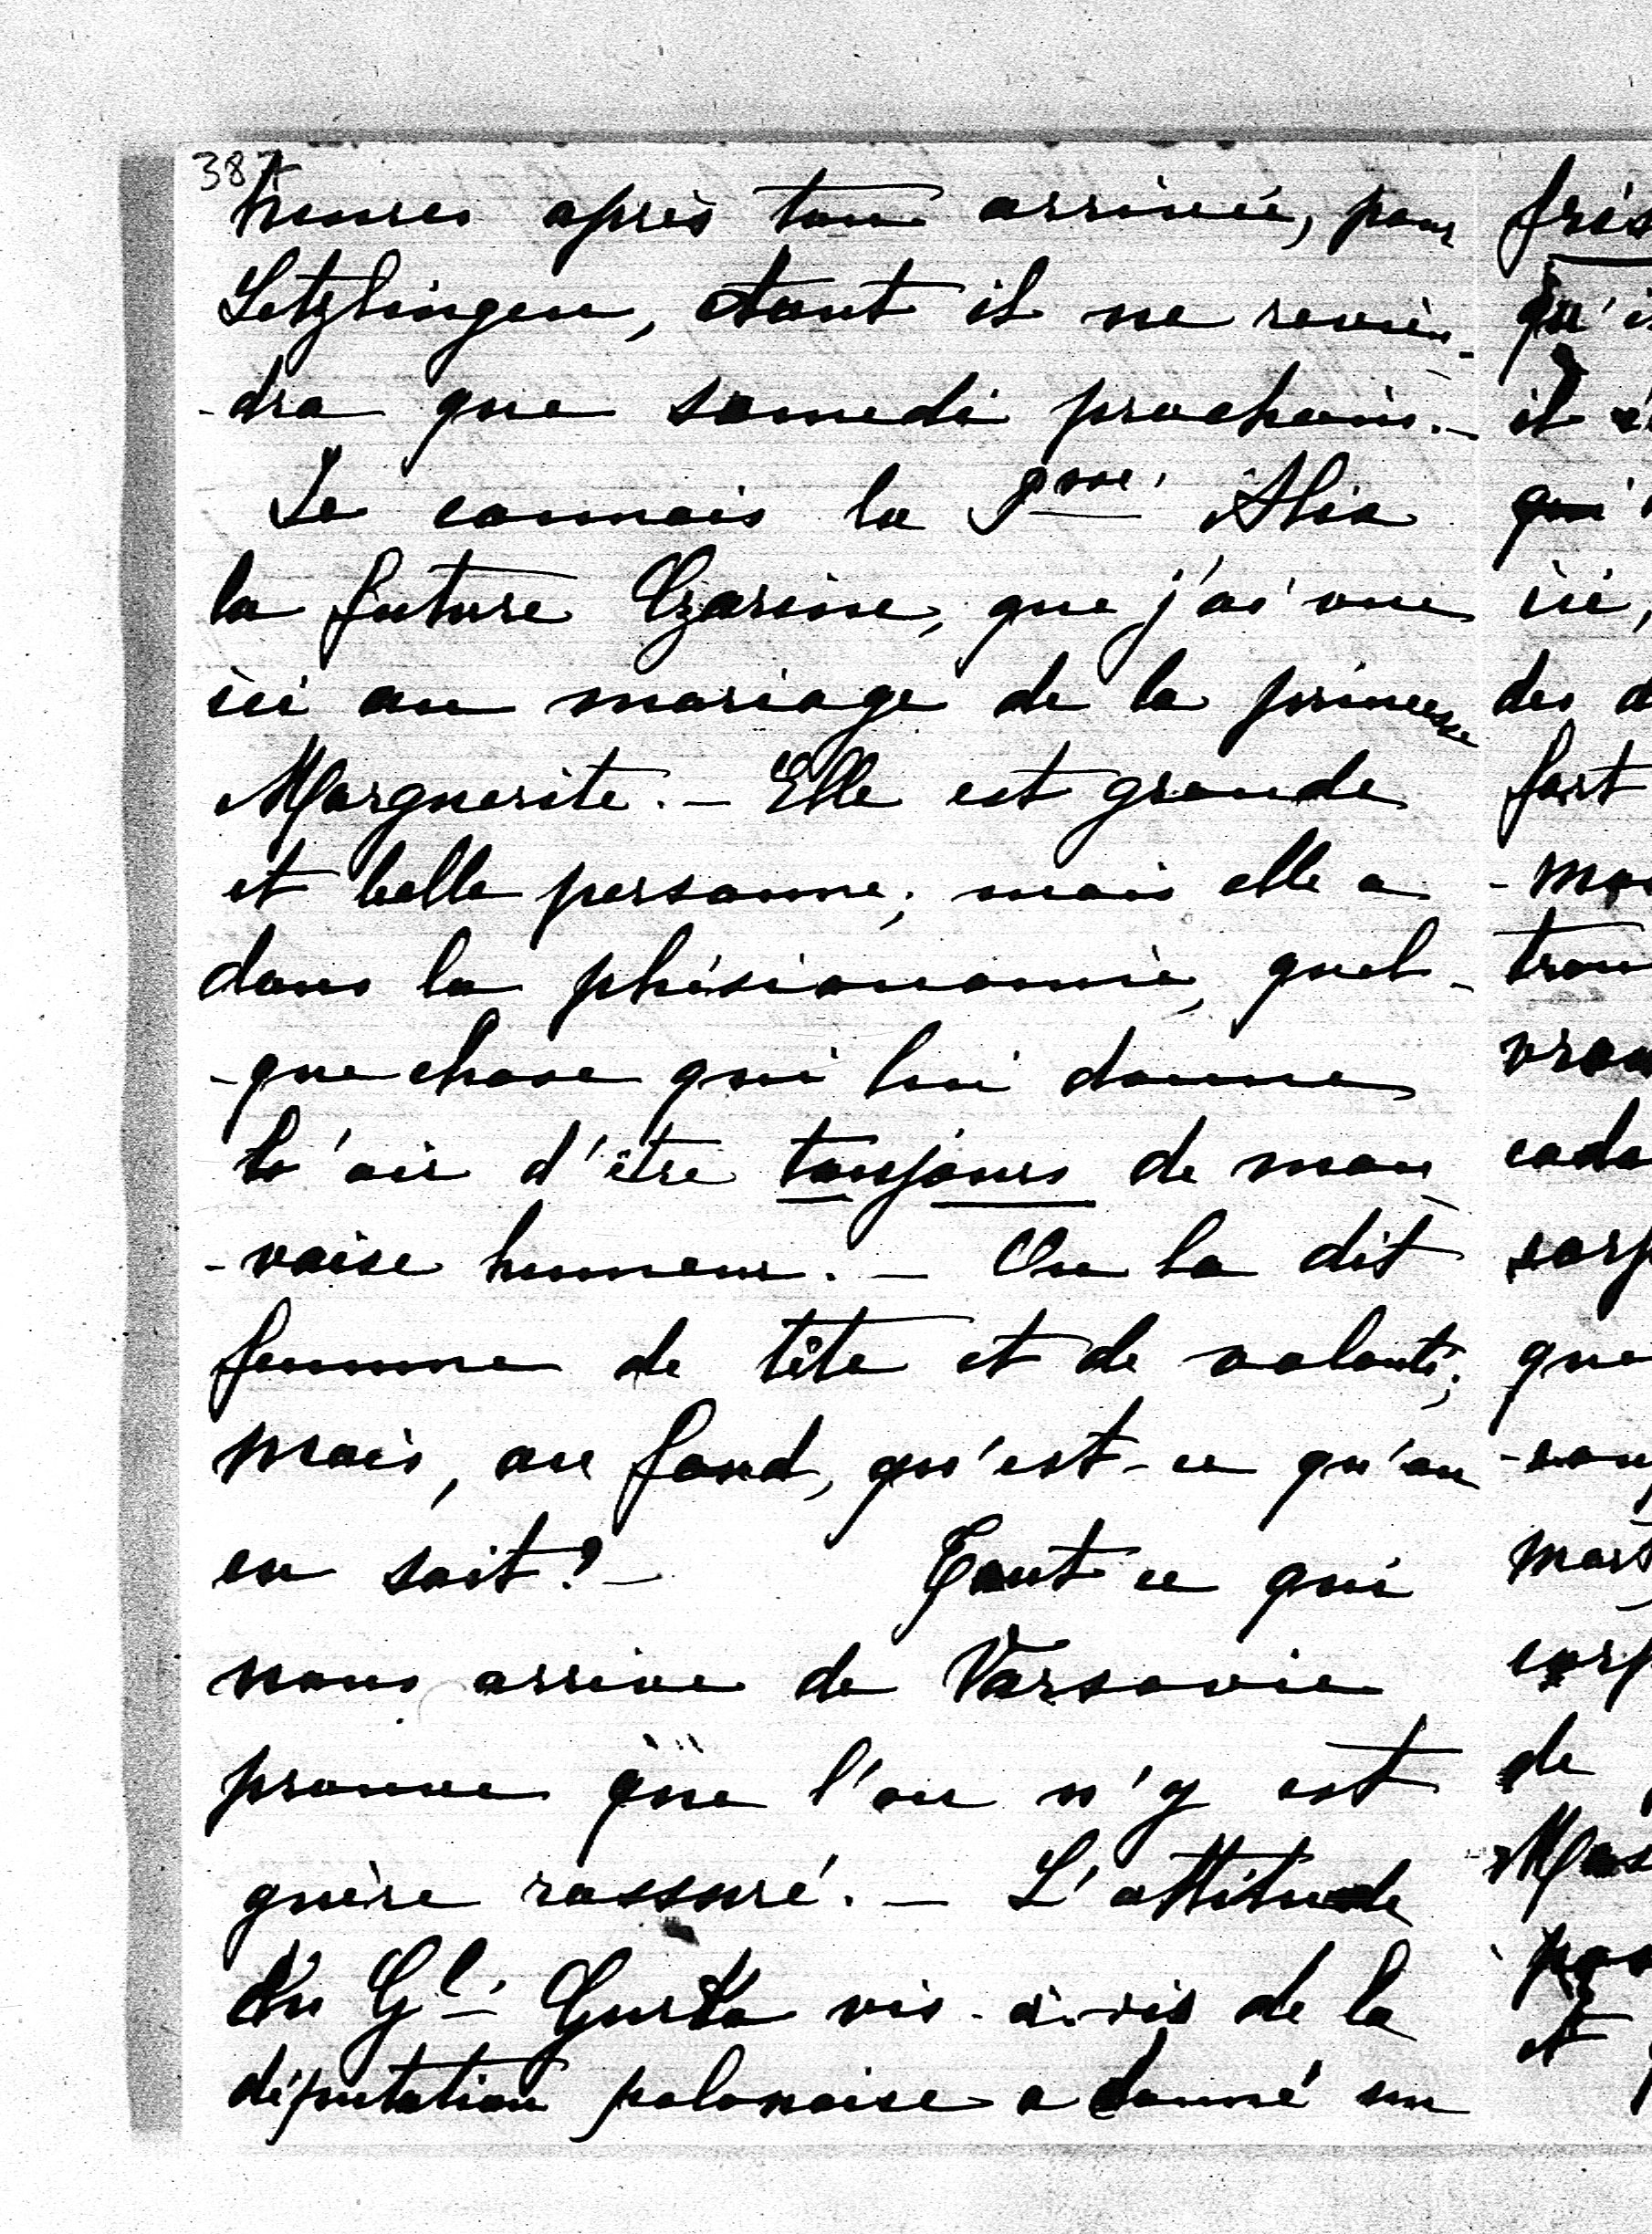 387
heures après son arrivée, pour
Letzlingen, dont il ne revien-
-dra que samedi prochain. -
Je connais la Psse Alix
la future Czarine, que j'ai vue
ici au mariage de la princesse
Marguerite. - Elle est grande
et belle personne; mais elle a
dans la phésionomie, quel-
-que chose qui lui donne
l'air d'être toujours de mau-
-vaise humeur. - On la dit
femme de tête et de volonté;
mais, au fond, qu'est-ce qu'on
en sait? - Tout ce qui
nous arrive de Varsovie
prouve que l'on n'y est
guère rassuré. - L'attitude
du Gl Gurko vis-à-vis de la
députation polonaise a donné un
qu'i
il
qui
ici,
des d
fort
-
de
et